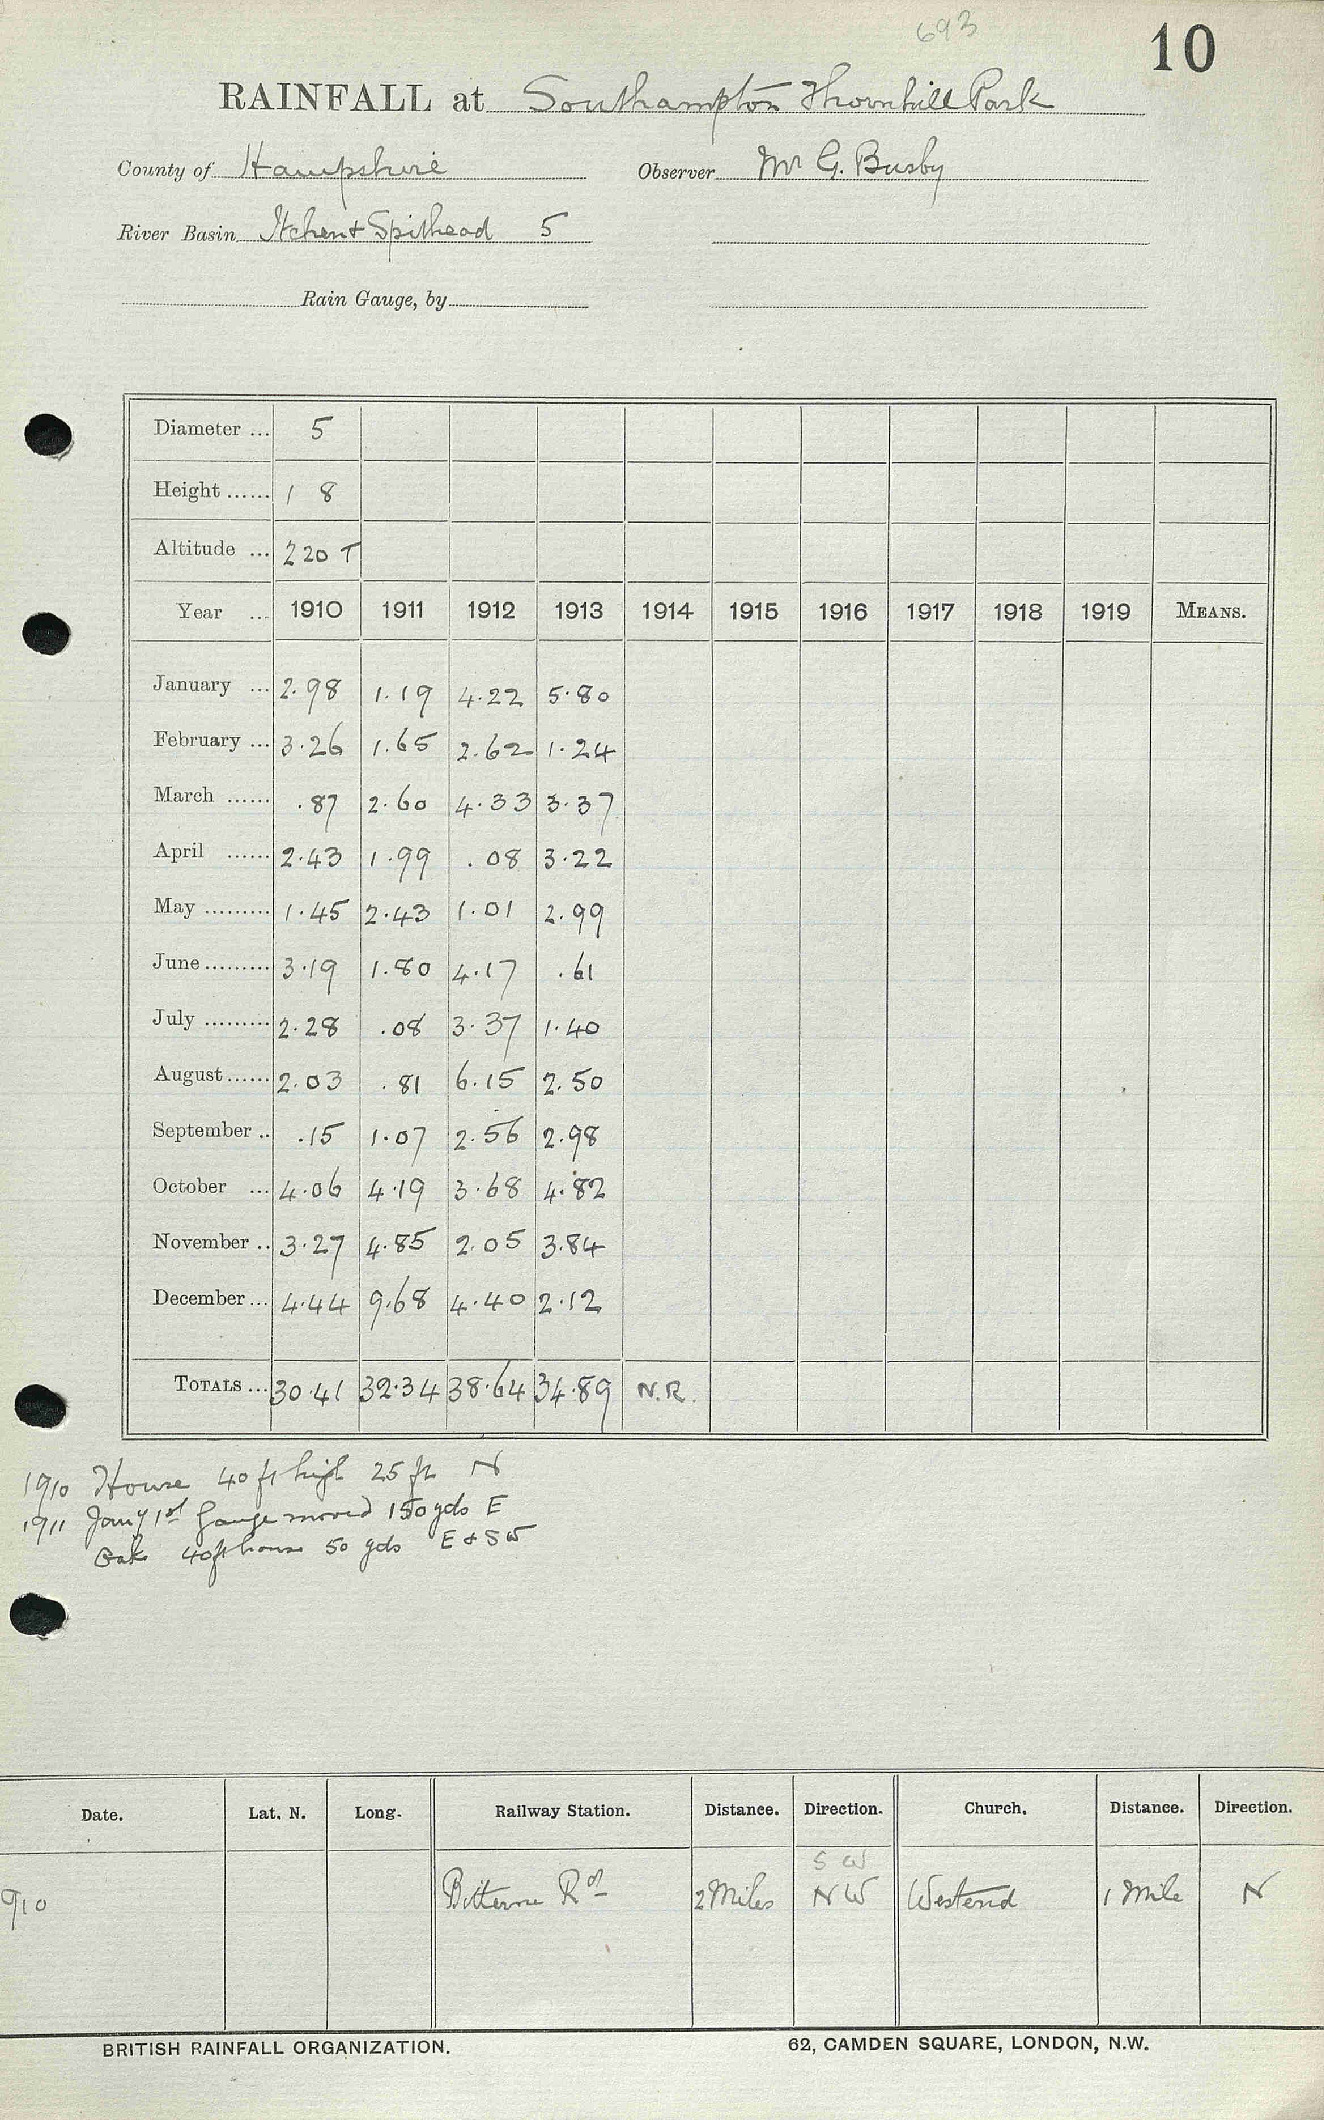 693
10
RAINFALL at Southampton Thornhill Park
County of Hampshire Observer Mr G. Busby
River Basin Itchen & Spithead 5
Rain Gauge, by
Diameter ... 5
Height ...... 1 8
Altitude ... 220 T
Year ... 1910 1911 1912 1913 1914 1915 1916 1917 1918 1919 MEANS.
January ... 2.98 1.19 4.22 5.80
February ... 3.26 1.65 2.62 1.24
March ...... .87 2.60 4.33 3.37
April ...... 2.43 1.99 .08 3.22
May ......... 1.45 2.43 1.01 2.99
June ......... 3.19 1.80 4.17 .61
July ......... 2.28 .08 3.37 1.40
August ...... 2.03 .81 6.15 2.50
September .. .15 1.07 2.56 2.98
October ... 4.06 4.19 3.68 4.82
November .. 3.27 4.85 2.05 3.84
December ... 4.44 9.68 4.40 2.12
TOTALS ... 30.41 32.34 38.64 34.89 N.R.
1910 House 40 ft high 25 ft N
1911 Jany 1st Gauge moved 150 yds E
Oak 40ft house 50 yds E & SW
Date. Lat. N. Long. Railway Station. Distance. Direction. Church. Distance. Direction.
S W
910 Bitterne Rd 2 Miles NW Westend 1 Mile N
BRITISH RAINFALL ORGANIZATION. 62, CAMDEN SQUARE, LONDON, N.W.